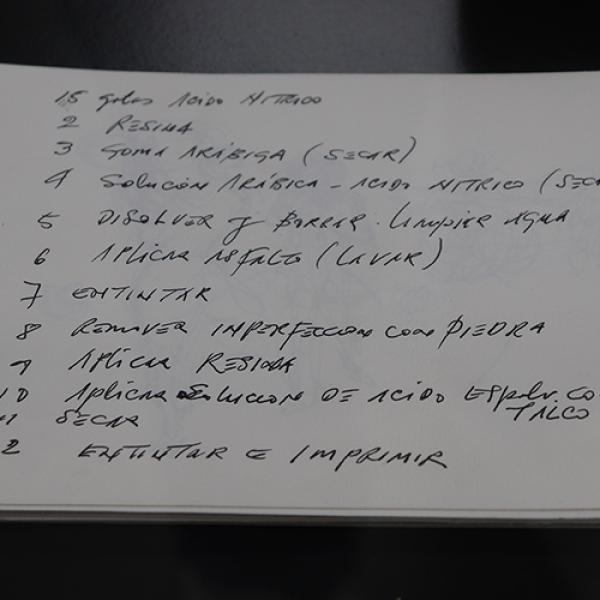 15 gotas ACIDO NITRICO
2 RESINA
3 GOMA ARÁBIGA (SECAR)
4 SOLUCION ARÁBICA - ACIDO NITRICO (SECA
5 DISOLVER y BORRAR. Limpiar AGUA
6 APLICAR ASFALTO (LAVAR)
7 ENTINTAR
8 REMOVER IMPERFECCION con PIEDRA
9 APLICAR RESINA
10 APLICAR SOLUCION DE ACIDO ESpolv. CO
TALCO
11 SECAR
2 ENTINTAR E IMPRIMIR